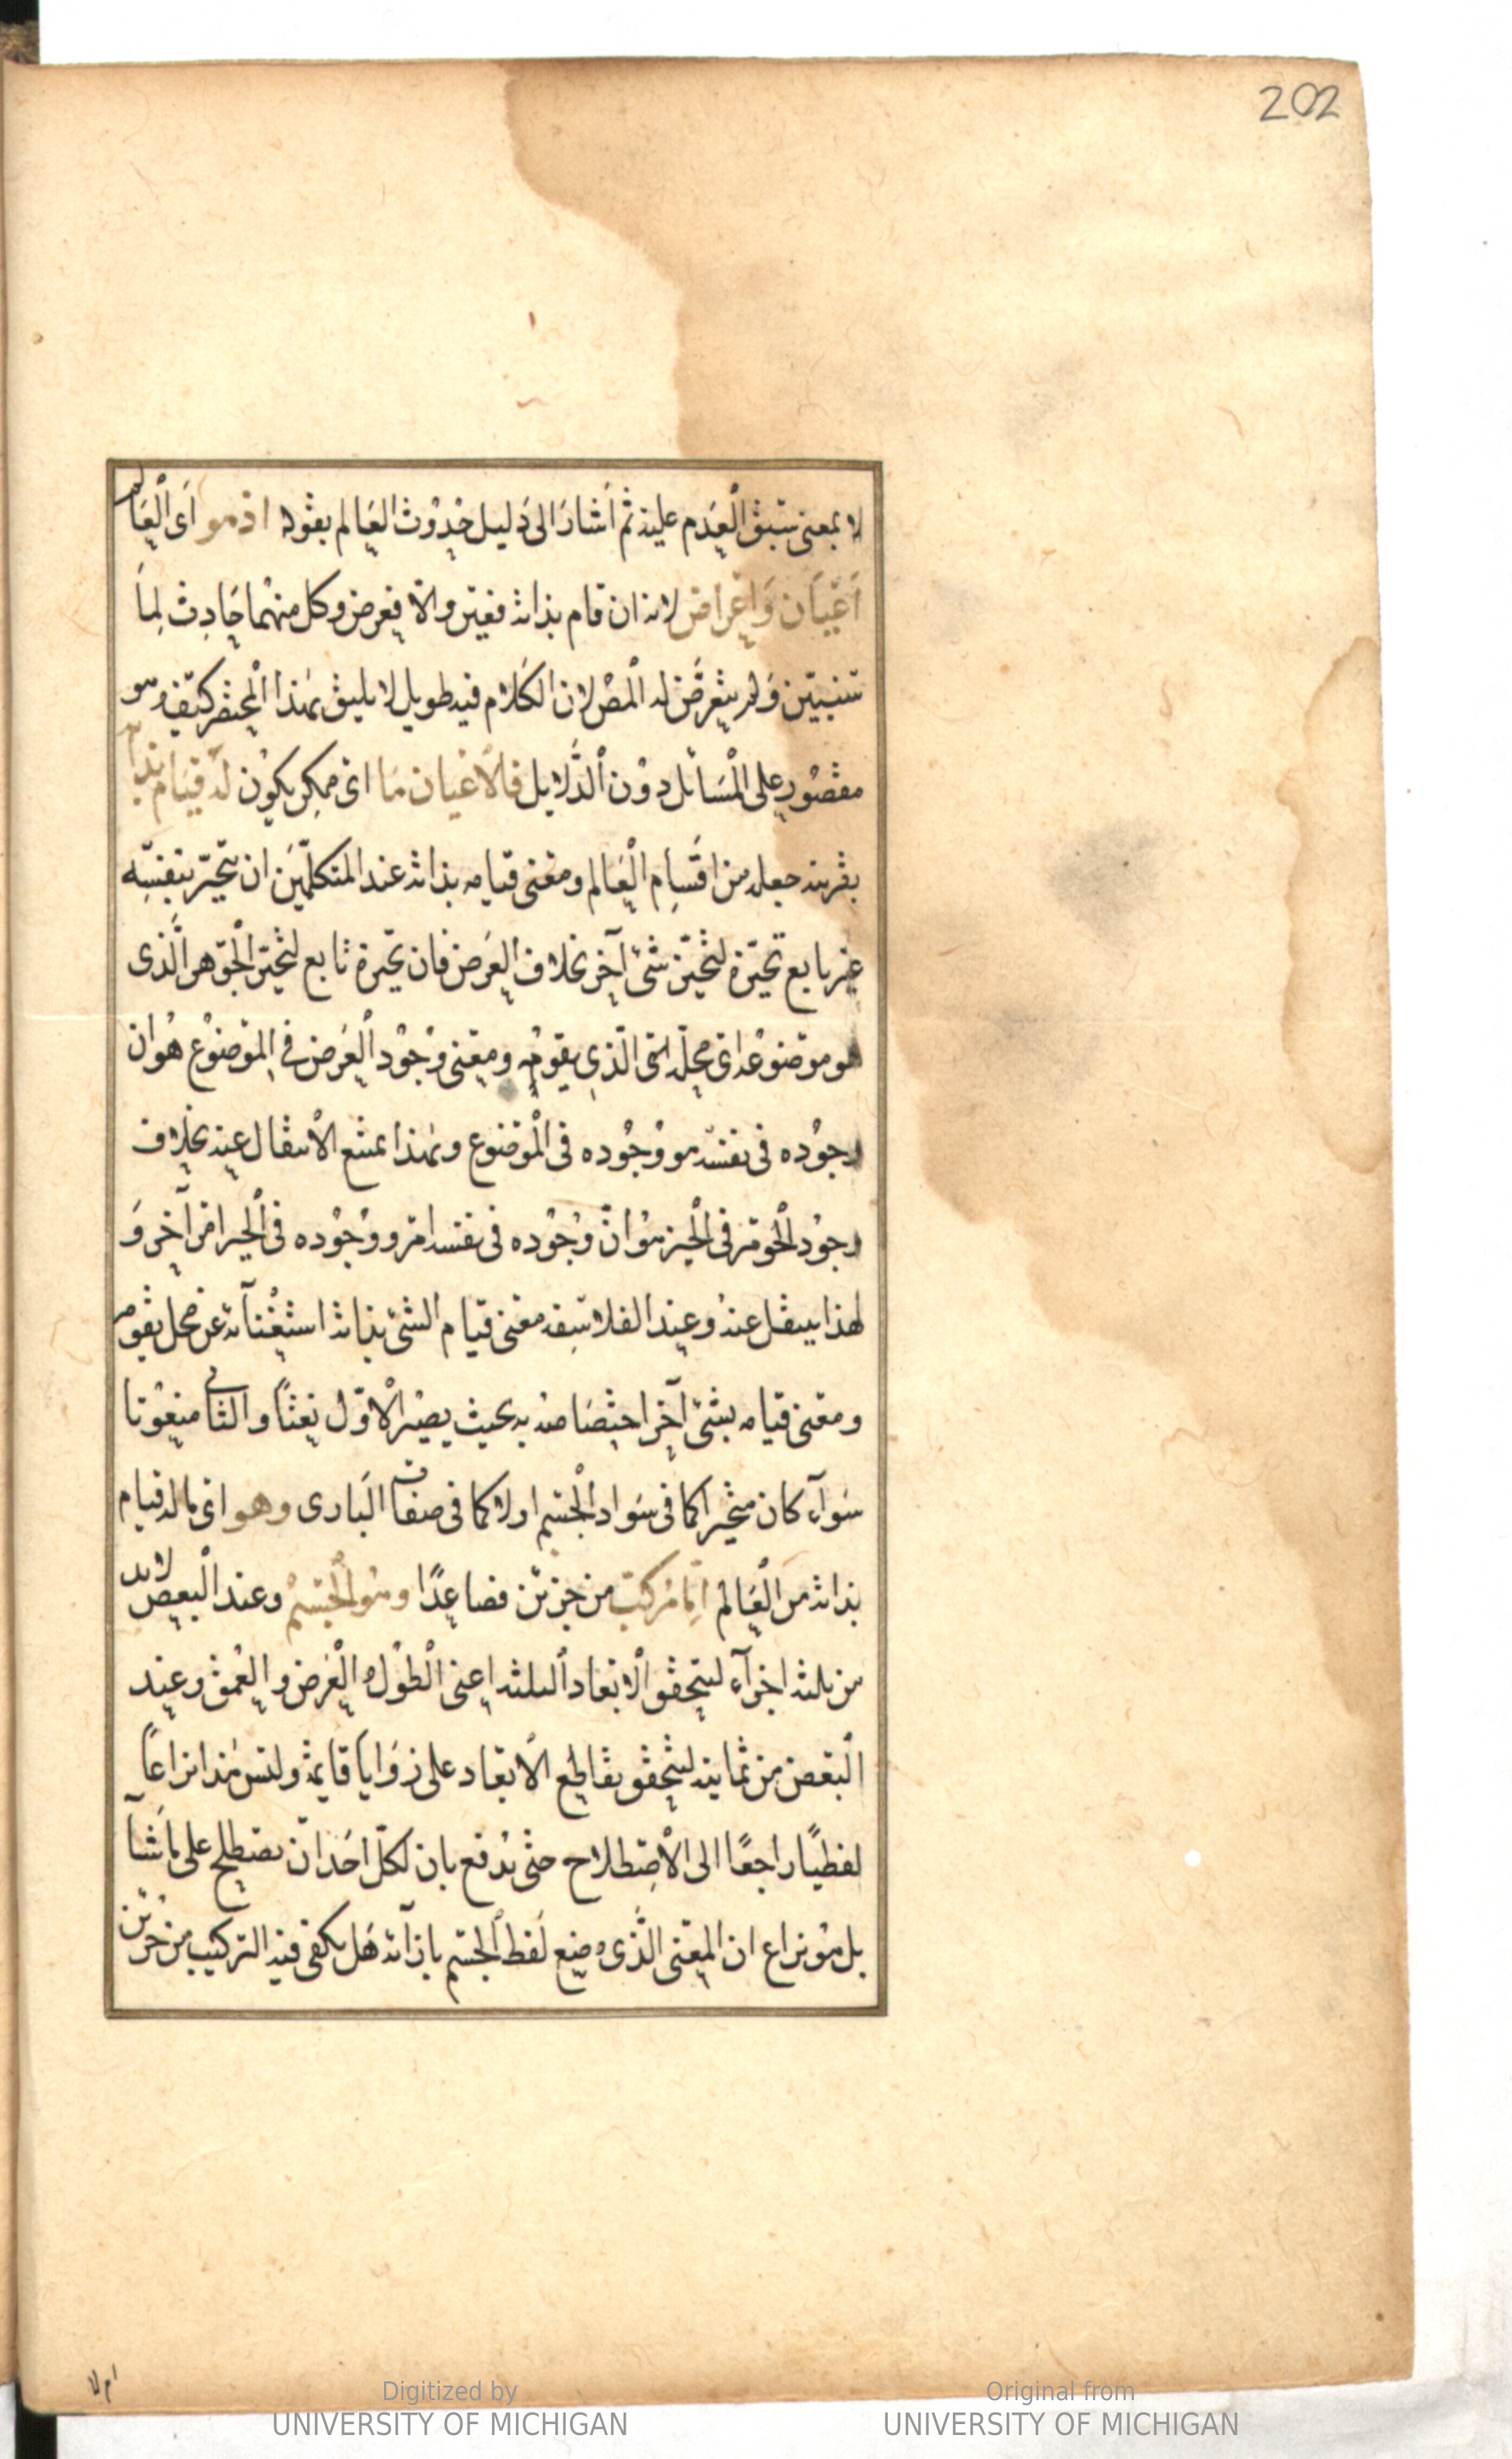 202
لا بمعنى سبق العدم عليه ثم أشار الى دليل حدوث العالم بقوله اذ هو اى العالم
أعيان وأعراض لانه ان قام بذاته فعين والا فعرض وكل منهما حادث لما
سنبين ولم يتعرض له المص لان الكلام فيه طويل لا يليق بهذا المختصر كيف وهو
مقصور على المسائل دون الدلايل فالاعيان ما اى ممكن يكون له قيام بذاته
بقرينه جعله من اقسام العالم ومعنى قيامه بذاته عند المتكلمين ان يتحيز بنفسه
غير تابع تحيزه لتحيز شئ آخر بخلاف العرض فان تحيزه تابع لتحيز الجوهر الذى
هو موضوعه اى محله الذى يقومه ومعنى وجود العرض فى الموضوع هو ان
وجوده فى نفسه هو وجوده فى الموضوع ولهذا يمتنع الانتقال عنه بخلاف
وجود الجوهر فى الحيز هو ان وجوده فى نفسه امر ووجوده فى الحيز امر آخر و
لهذا ينتقل عنه وعند الفلاسفه معنى قيام الشئ بذاته استغنآئه عن محل يقومه
ومعنى قيامه بشئ آخر اختصاصه به بحيث يصير الاول نعتا والثانى منعوتا
سوآء كان متحيزا كما فى سواد الجسم اولا كما فى صفات البارى وهو اى ماله قيام
بذاته من العالم اما مركب من جزئين فصاعدا وهو الجسم وعند البعض لابد
من ثلثه اجزآء ليتحقق الابعاد الثلثه اعنى الطول والعرض والعمق وعند
البعض من ثمانيه ليتحقق تقاطع الابعاد على زوايا قايمه وليس هذا نزاعا
لفظيا راجعا الى الاصطلاح حتى يدفع بان لكل احد ان يصطلح على ما شآ
بل هو نزاع ان المعنى الذى وضع لفظ الجسم بازآئه هل يكفى فيه التركيب من جزئين
ام لا
Digitized by
UNIVERSITY OF MICHIGAN
Original from
UNIVERSITY OF MICHIGAN